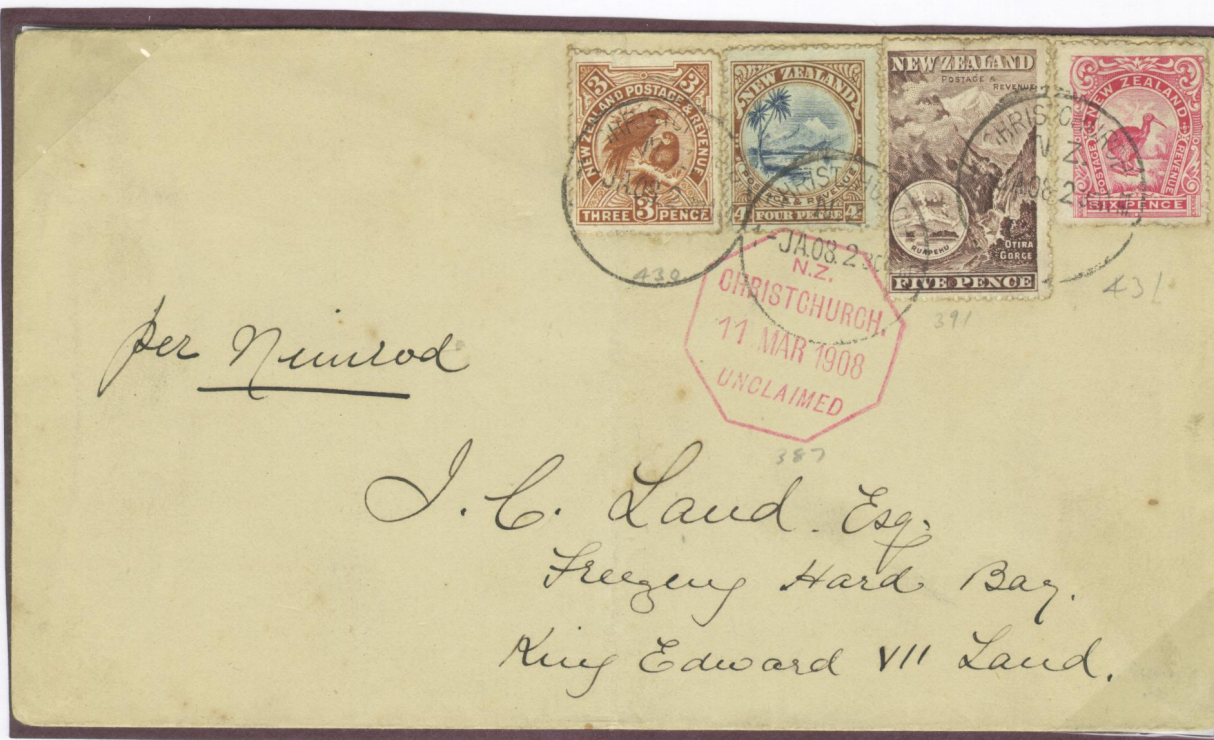 3 3
NEW ZEALAND POSTAGE & REVENUE
THREE 3 PENCE
NEW ZEALAND
POSTAGE & REVENUE
4 FOUR PENCE 4
NEW ZEALAND
POSTAGE & REVENUE
RUAPEHU
OTIRA GORGE
FIVE PENCE
NEW ZEALAND
POSTAGE & REVENUE
SIX PENCE
CHRISTCHURCH
N.Z.
JA.08.2
CHRISTCHURCH
N.Z.
JA.08.2
430
431
391
N.Z.
CHRISTCHURCH.
11 MAR 1908
UNCLAIMED
387
per Nimrod
J. C. Laud. Esq.
Freezeng Hard Bay.
King Edward VII Land.